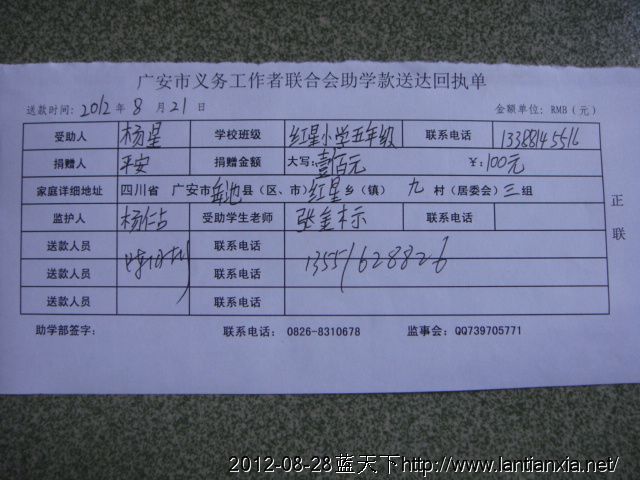 广安市义务工作者联合会助学款送达回执单
送款时间: 2012 年 8 月 21 日 金额单位: RMB (元)
受助人 杨星 学校班级 红星小学五年级 联系电话 13388145516
捐赠人 平安 捐赠金额 大写: 壹佰元 ¥: 100元
家庭详细地址 四川省 广安市 岳池 县(区、市) 红星 乡(镇) 九 村(居委会) 三 组
监护人 杨仁占 受助学生老师 张金标 联系电话
送款人员 联系电话
送款人员 联系电话 13551628826
送款人员 联系电话
正联
助学部签字: 联系电话: 0826-8310678 监事会: QQ739705771
2012-08-28蓝天下http://www.lantianxia.net/